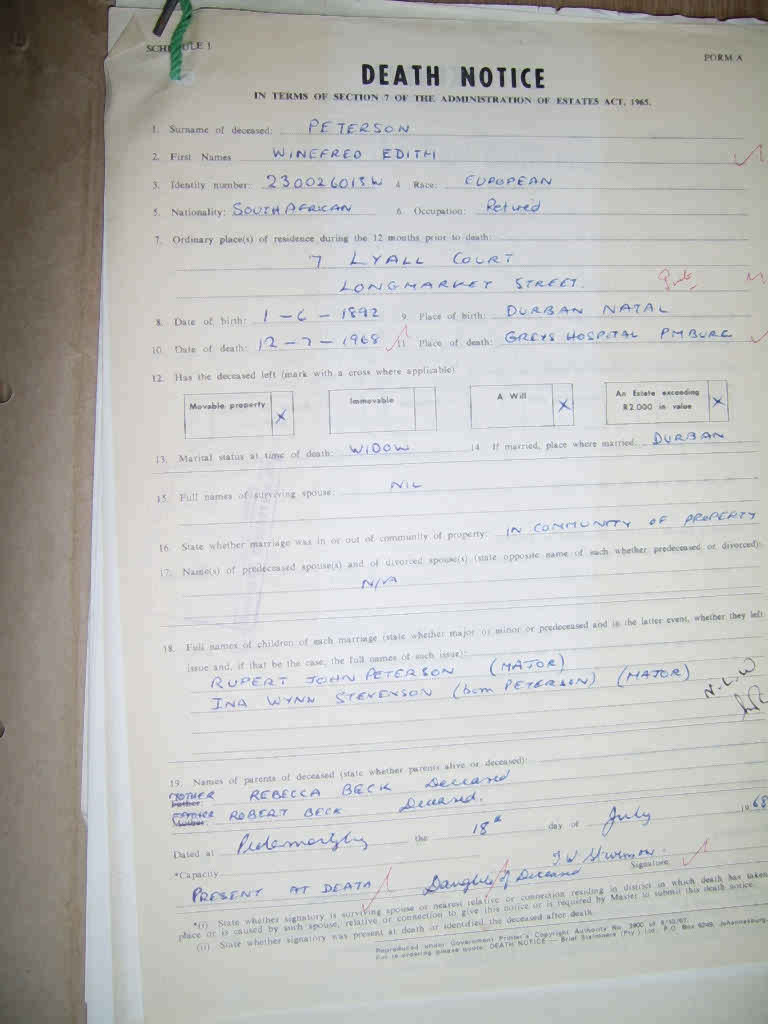 SCHEDULE 1
FORM A
DEATH NOTICE
IN TERMS OF SECTION 7 OF THE ADMINISTRATION OF ESTATES ACT, 1965.
1. Surname of deceased: PETERSON
2. First Names WINEFRED EDITH
3. Identity number: 230026013W 4. Race: EUROPEAN
5. Nationality: SOUTH AFRICAN 6. Occupation: Retired
7. Ordinary place(s) of residence during the 12 months prior to death:
7 LYALL COURT
LONGMARKET STREET.
8. Date of birth: 1-6-1892 9. Place of birth: DURBAN NATAL
10. Date of death: 12-7-1968 11. Place of death: GREYS HOSPITAL PMBURG
12. Has the deceased left (mark with a cross where applicable)
Movable property X Immovable A Will X An Estate exceeding R2.000 in value X
13. Marital status at time of death: WIDOW 14. If married, place where married. DURBAN
15. Full names of surviving spouse: NIL
16. State whether marriage was in or out of community of property: IN COMMUNITY OF PROPERTY
17. Name(s) of predeceased spouse(s) and of divorced spouse(s) (state opposite name of each whether predeceased or divorced):
N/A
18. Full names of children of each marriage (state whether major or minor or predeceased and in the latter event, whether they left
issue and, if that be the case, the full names of such issue):
RUPERT JOHN PETERSON (MAJOR)
INA WYNN STEVENSON (born PETERSON) (MAJOR)
19. Names of parents of deceased (state whether parents alive or deceased):
MOTHER REBECCA BECK Deceased
Father:
FATHER ROBERT BECK Deceased.
Mother:
Dated at the 18th day of July 1968
*Capacity Signature
PRESENT AT DEATH Daughter of Deceased
*(i) State whether signatory is surviving spouse or nearest relative or connection residing in district in which death has taken
place or is caused by such spouse, relative or connection to give this notice or is required by Master to submit this death notice.
(ii) State whether signatory was present at death or identified the deceased after death.
Reproduced under Government Printer's Copyright Authority No. 3900 of 5/10/67.
For re-ordering please quote: DEATH NOTICE — Brief Stationers (Pty.) Ltd. P.O. Box 6249, Johannesburg.